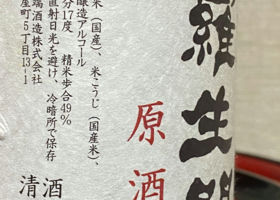 羅生門
原酒
米(国産)、米こうじ(国産米)、
醸造アルコール
分17度 精米歩合49%
直射日光を避け、冷暗所で保存
瑞酒造株式会社
屋町5丁目13-1
清酒